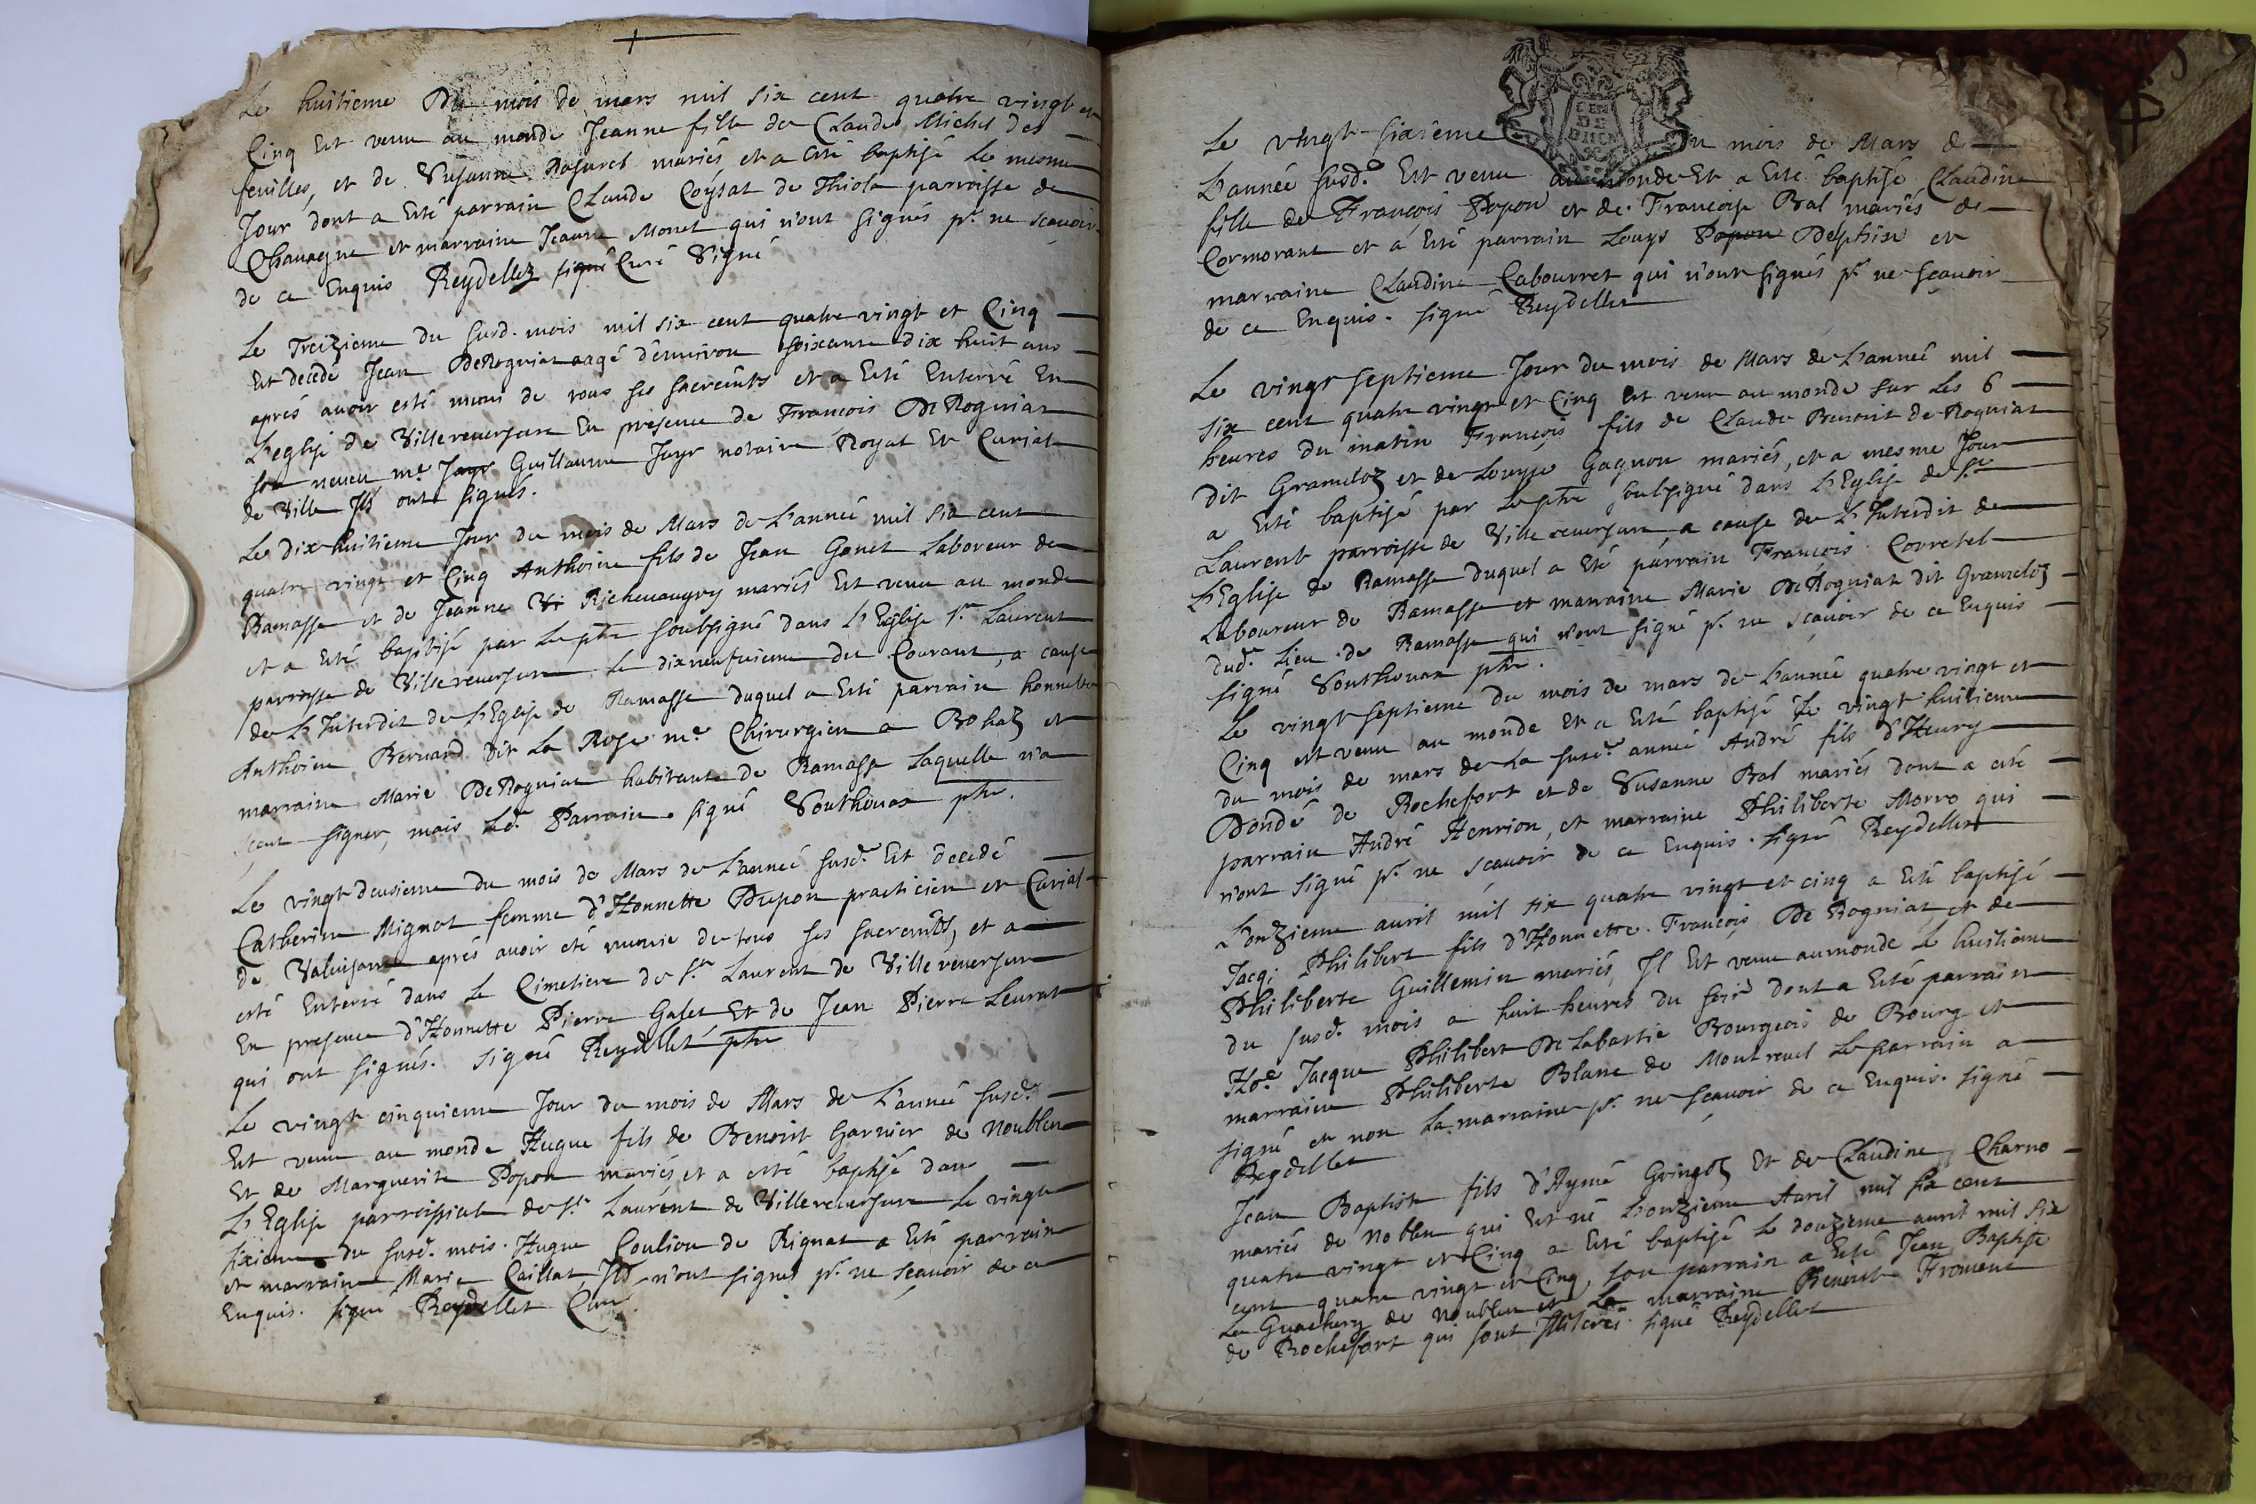 Le huitieme Du mois de mars mil six cent quatre vingt et
Cinq Est venu au monde Jeanne fille de Claude Michel des
feuilles, et de Susanne mariés et a Esté baptisé Le mesme
Jour dont a Esté parrain Claude Coysat de Thiola parroisse de
Chavagne et marraine Jeanne Monet qui n'ont signés pr. ne scavoir
de ce Enquis Reydellet signé Curé Signé
Le Treizieme du susd. mois mil six cent quatre vingt et Cinq
Est decedé Jean DeRogniat aagé d'environ soixante dix huit ans
aprés avoir esté muni de tous ses sacremts et a Esté Enterré En
L'eglise de Villereversure En presence de François De Rogniat
son neveu me. Jayr Guillaume Jayr notaire Royal Et Curial
de Ville Ils ont signés.
Le dix huitieme Jour du mois de Mars de L'année mil six cent
quatre vingt et Cinq Anthoine fils de Jean Gonet Laboreur de
Ramasse et de Jeanne mariés Est venu au monde
et a Esté baptisé par Le ptre soubsigné dans L'Eglise St. Laurent
parroisse de Villereversure le dixneufvieme du Courant, a cause
de L'Interdit de L'Eglise de Ramasse duquel a Esté parrain honneste
Anthoine Bernard dit La Rose me. Chirurgien a Bohaz et
marraine Marie DeRogniat habitante de Ramasse Laquelle n'a
sceut signer, mais Led. Parrain. signé Vouthouax ptre.
Le vingt deusieme du mois de Mars de L'année susd. Est decedé
Catherine Mignot femme d'Honnette Dupon practicien et Curial
de Valuisant aprés avoir eté munie de tous ses sacremts, et a
esté Enterré dans Le Cimetiere de St. Laurent de Villereversure
En presence d'Honnette Pierre Galet Et de Jean Pierre Leurat
qui ont signés. signé Reydellet ptre
Le vingt cinquieme Jour du mois de Mars de L'année susd.
Est venu au monde Hugue fils de Benoit Garnier de Noublen
Et de Marguerite Popon mariés et a esté baptisé dan
L'Eglise parroissiale de St. Laurent de Villereversure le vingt
sixieme du susd. mois. Hugue Coulion de Rignat a Esté parrain
et marraine Marie Caillat, Ils n'ont signes pr. ne scavoir de ce
Enquis. signé Reydellet Curé
Le vingt-sixieme Du mois de Mars de
L'année susd. Est venu au monde Et a Esté baptisé Claudine
fille de François Popon et de Françoise Bal mariés de
Cormorant et a Esté parrain Louys Popon Dephise et
marraine Claudine Cabourret qui n'ont signés pr. ne scavoir
de ce Enquis. signé Reydellet
Le vingt septieme Jour du mois de Mars de L'année mil
six cent quatre vingt et Cinq Est venu au monde sur Les 6
heures du matin François fils de Claude Benoit de Rogniat
dit Grameloz et de Louyse Gagnon mariés, et a mesme Jour
a Esté baptisé par Le ptre soubsigné dans L'Eglise de St.
Laurent parroisse de Villereversure, a cause de L'Interdit de
L'Eglise de Ramasse duquel a Eté parrain François Corretel
Laboureur de Ramasse et marraine Marie DeRogniat dit Grameloz
dud. Lieu de Ramasse qui n'ont signé pr. ne scavoir de ce Enquis
signé Vouthouax ptre.
Le vingt septieme du mois de mars de L'année quatre vingt et
Cinq est venu au monde Et a Esté baptisé Le vingt huitieme
du mois de mars de La susd. année André fils d'Henry
Dondé de Rochefort et de Susanne Bal mariés dont a eté
parrain André Henrion, et marraine Philiberte Morro qui
n'ont signé pr. ne scavoir de ce Enquis. signé Reydellet
L'onzieme avril mil six quatre vingt et cinq a Esté baptisé
Jacq: Philibert fils d'Honnette. François De Rogniat et de
Philiberte Guillemin mariés, Il Est venu au monde Le huitieme
du susd. mois a huit heures du soir dont a Esté parrain
Ho.e Jacque Philibert De Labastie Bourgeois de Bourg et
marraine Philiberte Blanc de Montrevel Le parrain a
signé et non La marraine pr. ne scavoir de ce Enquis. signé
Reydellet
Jean Baptiste fils d'Aymé Gringoz Et de Claudine Charno
mariés de Noblen qui Est né L'onzieme Avril mil six cent
quatre vingt et Cinq a Esté baptisé Le douzieme avril mil six
cent quatre vingt et Cinq, son parrain a Esté Jean Baptiste
La Guachery de Noublen et La marraine Benoite Froment
de Rochefort qui sont Illiteres. signé Reydellet